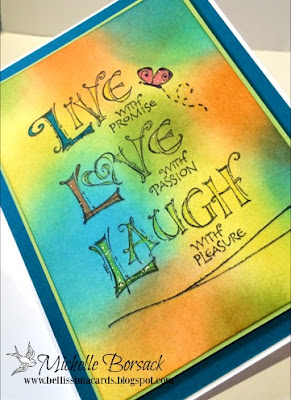 LIVE
WITH
PROMISE
LOVE
WITH
PASSION
LAUGH
WITH
PLEASURE
Michelle Borsack
www.bellissimacards.blogspot.com